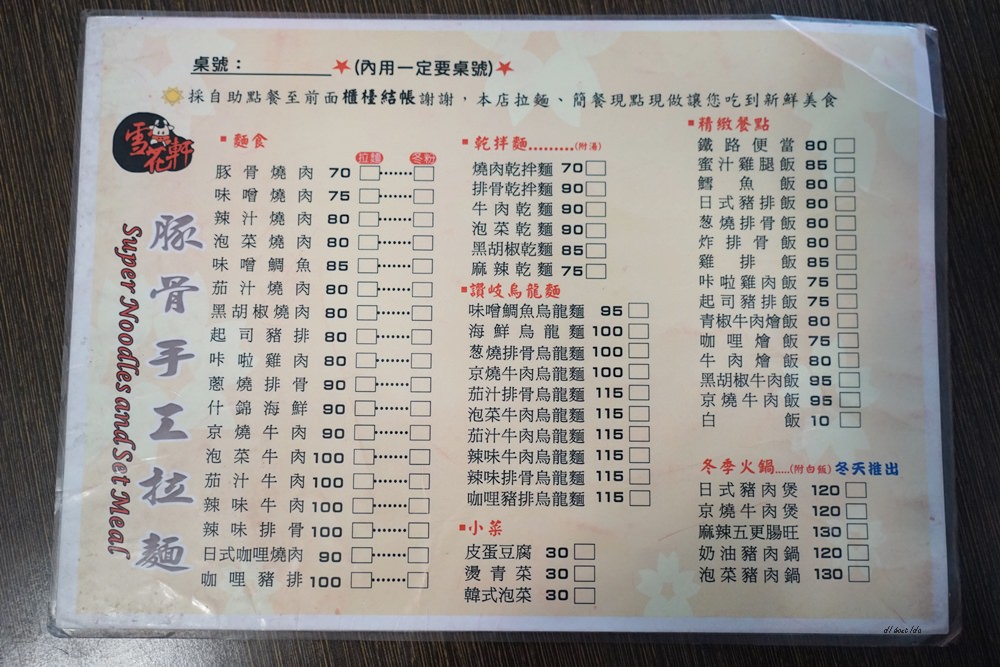 桌號：________★(內用一定要桌號)★
採自助點餐至前面櫃檯結帳謝謝，本店拉麵、簡餐現點現做讓您吃到新鮮美食
雪花軒
豚骨手工拉麵
Super Noodles and Set Meal
麵食
拉麵 冬粉
豚骨燒肉 70
味噌燒肉 75
辣汁燒肉 80
泡菜燒肉 80
味噌鯛魚 85
茄汁燒肉 80
黑胡椒燒肉 80
起司豬排 80
咔啦雞肉 80
蔥燒排骨 90
什錦海鮮 90
京燒牛肉 90
泡菜牛肉 100
茄汁牛肉 100
辣味牛肉 100
辣味排骨 100
日式咖哩燒肉 90
咖哩豬排 100
乾拌麵.........(附湯)
燒肉乾拌麵 70
排骨乾拌麵 90
牛肉乾麵 90
泡菜乾麵 90
黑胡椒乾麵 85
麻辣乾麵 75
讚岐烏龍麵
味噌鯛魚烏龍麵 95
海鮮烏龍麵 100
葱燒排骨烏龍麵 100
京燒牛肉烏龍麵 100
茄汁排骨烏龍麵 115
泡菜牛肉烏龍麵 115
茄汁牛肉烏龍麵 115
辣味牛肉烏龍麵 115
辣味排骨烏龍麵 115
咖哩豬排烏龍麵 115
小菜
皮蛋豆腐 30
燙青菜 30
韓式泡菜 30
精緻餐點
鐵路便當 80
蜜汁雞腿飯 85
鱈魚飯 80
日式豬排飯 80
葱燒排骨飯 80
炸排骨飯 80
雞排飯 85
咔啦雞肉飯 75
起司豬排飯 75
青椒牛肉燴飯 80
咖哩燴飯 75
牛肉燴飯 80
黑胡椒牛肉飯 95
京燒牛肉飯 95
白飯 10
冬季火鍋.....(附白飯)冬天推出
日式豬肉煲 120
京燒牛肉煲 120
麻辣五更腸旺 130
奶油豬肉鍋 120
泡菜豬肉鍋 130